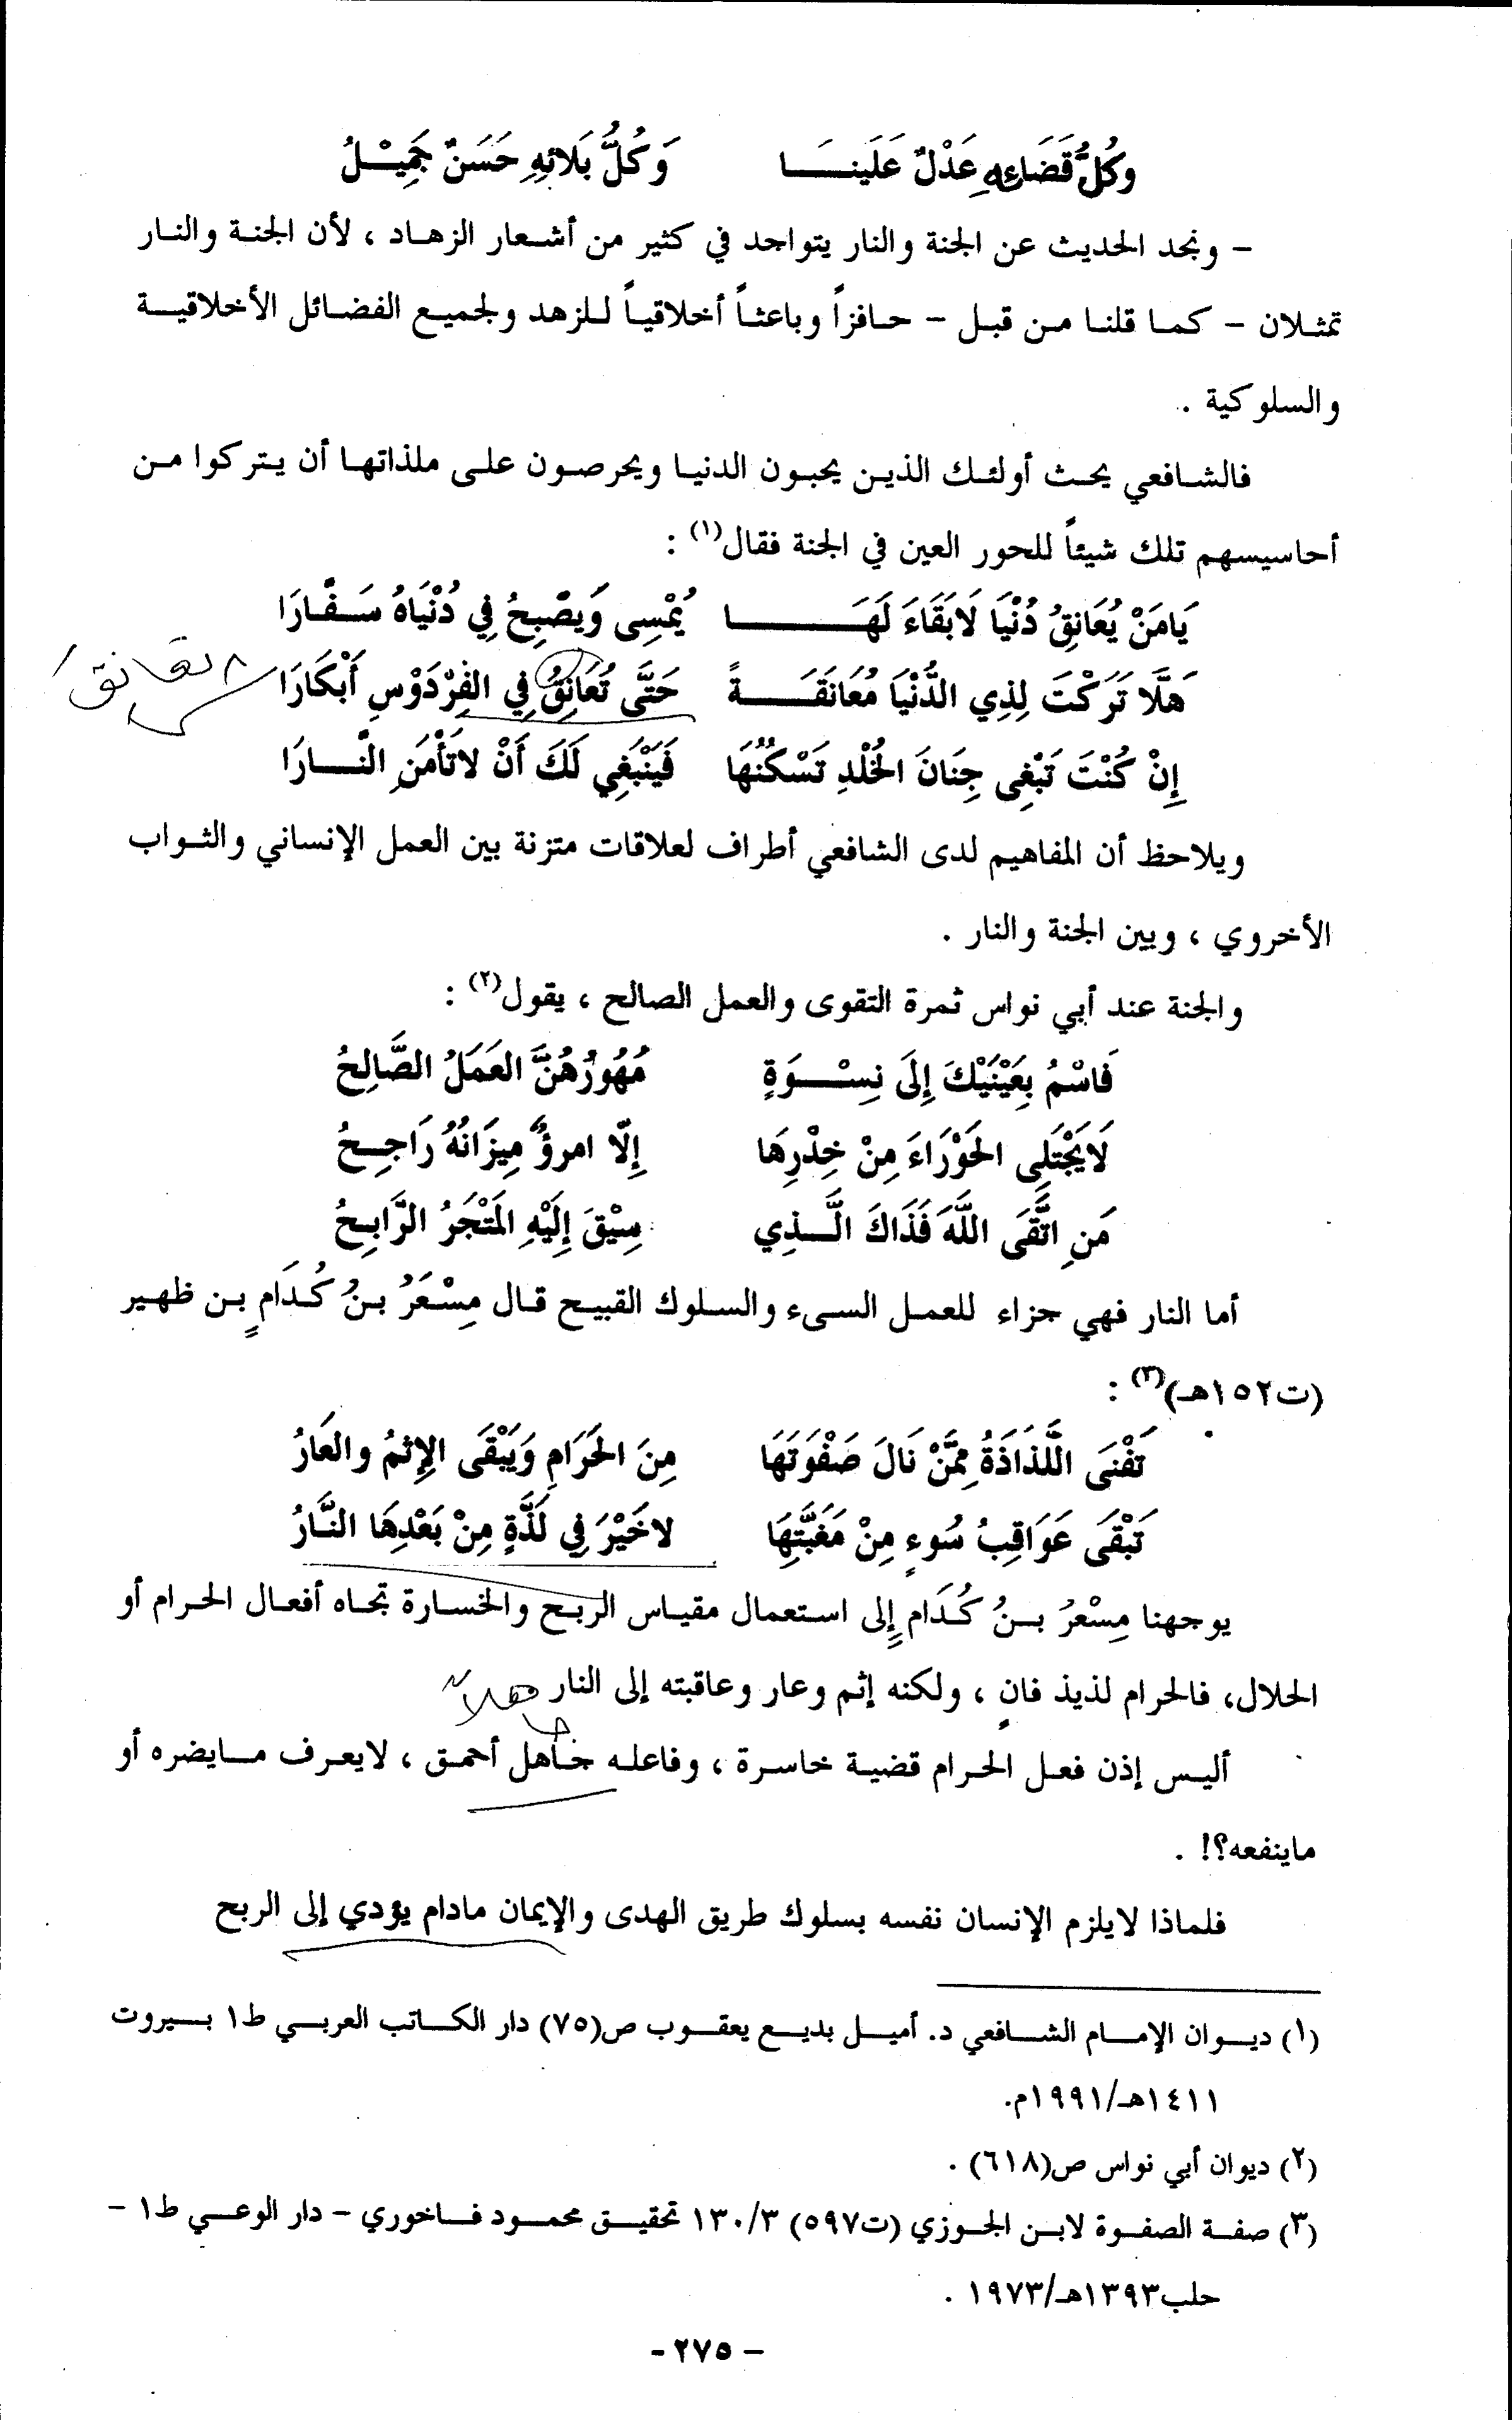 وَكُلُّ قَضَائِهِ عَدْلٌ عَلَينَا وَكُلُّ بَلائِهِ حَسَنٌ جَمِيْلُ
– ونجد الحديث عن الجنة والنار يتواجد في كثير من أشعار الزهاد ، لأن الجنة والنار
تمثلان – كما قلنا من قبل – حافزاً وباعثاً أخلاقياً للزهد ولجميع الفضائل الأخلاقية
والسلوكية .
فالشافعي يحث أولئك الذين يحبون الدنيا ويحرصون على ملذاتها أن يتركوا من
أحاسيسهم تلك شيئاً للحور العين في الجنة فقال(١) :
يَامَنْ يُعَانِقُ دُنْيَا لَابَقَاءَ لَهَا يُمْسِى وَيصْبِحُ فِي دُنْيَاهُ سَفَّارَا
هَلَّا تَرَكْتَ لِذِي الدُّنْيَا مُعَانَقَةً حَتَّى تُعَانِقُ فِي الفِرْدَوْسِ أَبْكَارَا
تعانق
إِنْ كُنْتَ تَبْغِى جِنَانَ الخُلْدِ تَسْكُنُهَا فَيَنْبَغِي لَكَ أَنْ لاتَأْمَنِ النَّارَا
ويلاحظ أن المفاهيم لدى الشافعي أطراف لعلاقات متزنة بين العمل الإنساني والثواب
الأخروي ، وبين الجنة والنار .
والجنة عند أبي نواس ثمرة التقوى والعمل الصالح ، يقول(٢) :
فَاسْمُ بِعَيْنَيْكَ إِلَى نِسْوَةٍ مُهُورُهُنَّ العَمَلُ الصَّالِحُ
لَايَجْتَلِى الحَوْرَاءَ مِنْ خِدْرِهَا إِلّا امرؤٌ مِيزَانُهُ رَاجِحُ
مَنِ اتَّقَى اللَّهَ فَذَاكَ الَّذِي سِيْقَ إِلَيْهِ المَتْجَرُ الرَّابِحُ
أما النار فهي جزاء للعمل السىء والسلوك القبيح قال مِسْعَرُ بنُ كُدَامٍ بن ظهير
(ت١٥٢هـ)(٣) :
تَفْنَى اللَّذَاذَةُ مِمَّنْ نَالَ صَفْوَتَهَا مِنَ الحَرَامِ وَيَبْقَى الإِثمُ والعَارُ
تَبْقَى عَوَاقِبُ سُوءٍ مِنْ مَغَبَّتِهَا لاخَيْرَ فِي لَذَّةٍ مِنْ بَعْدِهَا النَّارُ
يوجهنا مِسْعرُ بنُ كُدَامٍ إِلى استعمال مقياس الربح والخسارة تجاه أفعال الحرام أو
الحلال، فالحرام لذيذ فانٍ ، ولكنه إثم وعار وعاقبته إلى النار
أليس إذن فعل الحرام قضية خاسرة ، وفاعله خاهل أحمق ، لايعرف مايضره أو
ماينفعه؟! .
فلماذا لايلزم الإنسان نفسه بسلوك طريق الهدى والإيمان مادام يؤدي إلى الربح
(١) ديوان الإمام الشافعي د. أميل بديع يعقوب ص(٧٥) دار الكاتب العربي ط١ بيروت
١٤١١هـ/١٩٩١م.
(٢) ديوان أبي نواس ص(٦١٨) .
(٣) صفة الصفوة لابن الجوزي (ت٥٩٧) ١٣٠/٣ تحقيق محمود فاخوري – دار الوعي ط١ –
حلب١٣٩٣هـ/١٩٧٣ .
– ٢٧٥ -